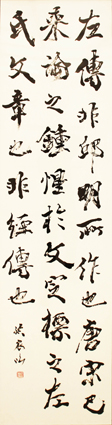 左傳非邱明所作也唐宋已
來論之鍾惺於文定標之左
氏文章也非經傳也